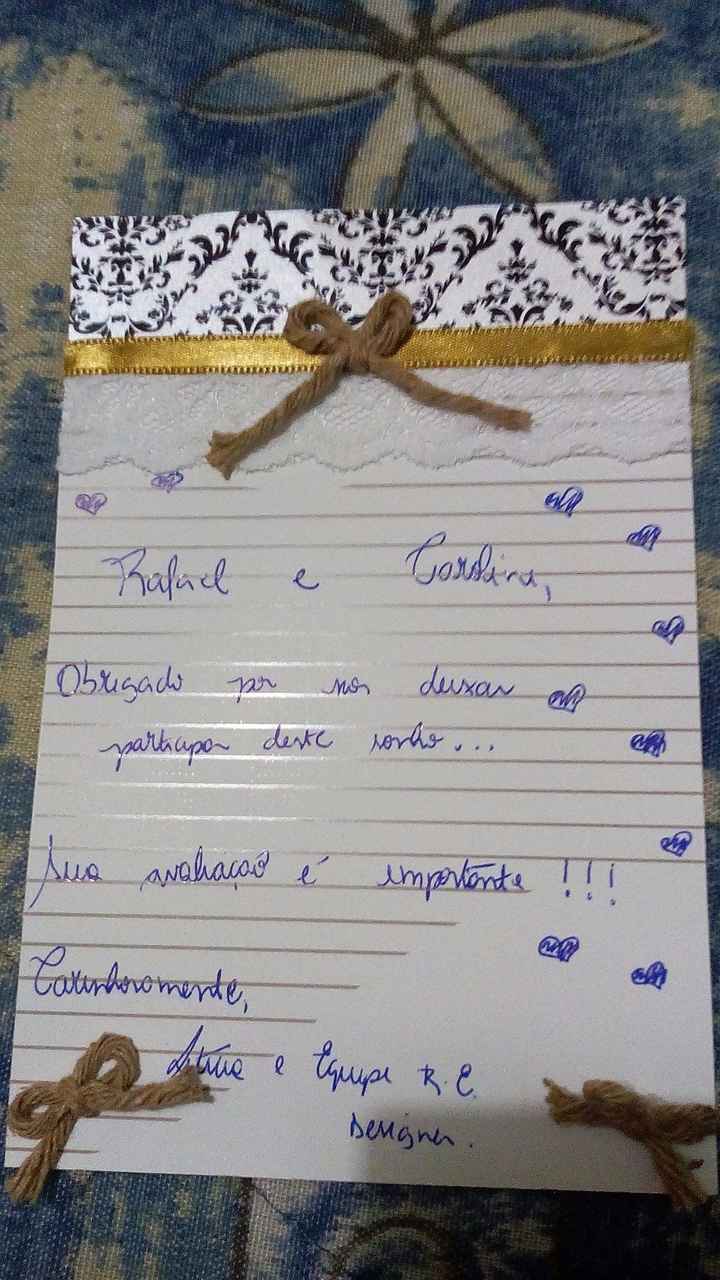 Rafael e Carolina,
Obrigado por nos deixar
participar deste sonho...
Sua avaliação é importante!!!
Carinhosamente,
e Equipe R.E.
Designer.